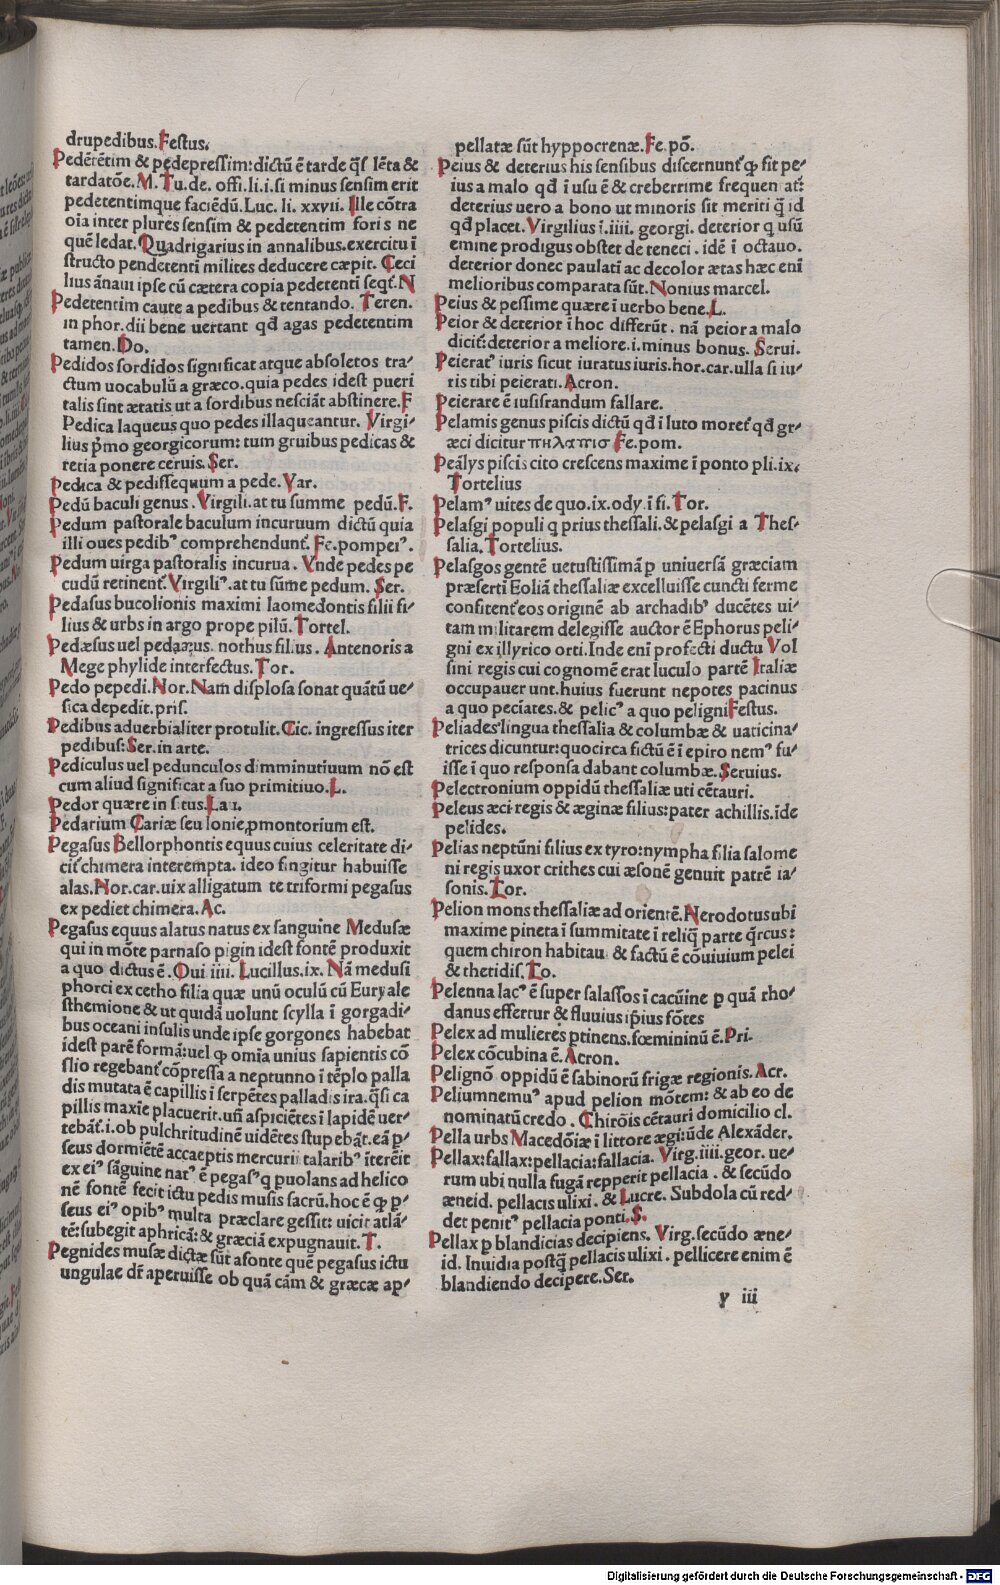 drupedibus. Festus.
Pedẽtẽtim & pedepressim: dictũ ẽ tarde q̃si lẽta &
tardatõe. M. Tu. de. offi. li. i. si minus sensim erit
pedetentimque faciẽdũ. Luc. li. xxvii. Ille cõtra
oĩa inter plures sensim & pedetentim foris ne
quẽ ledat. Quadrigarius in annalibus. exercitu ĩ
structo pendetenti milites deducere cæpit. Ceci
lius ãnaui ipse cũ cætera copia pedetenti seqt̃. N
Pedetentim caute a pedibus & tentando. Teren.
in phor. dii bene uertant qđ agas pedetentim
tamen. Do.
Pedidos sordidos significat atque absoletos tra-
ctum uocabulũ a græco. quia pedes idest pueri
talis sint ætatis ut a sordibus nesciãt abstinere. F
Pedica laqueus quo pedes illaqueantur. Virgi-
lius p̃mo georgicorum: tum gruibus pedicas &
retia ponere ceruis. Ser.
Pedica & pedissequum a pede. Var.
Pedũ baculi genus. Virgili. at tu summe pedũ. F.
Pedum pastorale baculum incuruum dictũ quia
illi oues pedibꝰ comprehendunt̃. Fe. pompeiꝰ.
Pedum uirga pastoralis incurua. Vnde pedes pe
cudũ retinent̃. Virgiliꝰ. at tu sũme pedum. Ser.
Pedasus bucolionis maximi laomedontis filii fi-
lius & urbs in argo prope pilũ. Tortel.
Pedæsus uel pedazus. nothus filius. Antenoris a
Mege phylide interfectus. Tor.
Pedo pepedi. Nor. Nam displosa sonat quãtũ ue-
sica depedit. pris.
Pedibus aduerbialiter protulit. Cic. ingressus iter
pedibus: Ser. in arte.
Pediculus uel pedunculos dimminutiuum nõ est
cum aliud significat a suo primitiuo. L.
Pedor quære in situs. Lau.
Pedarium Cariæ seu Ionie, pmontorium est.
Pegasus Bellorphontis equus cuius celeritate di-
cit̃ chimera interempta. ideo fingitur habuisse
alas. Nor. car. uix alligatum te triformi pegasus
ex pediet chimera. Ac.
Pegasus equus alatus natus ex sanguine Medusæ
qui in mõte parnaso pigin idest fontẽ produxit
a quo dictus ẽ. Oui iiii. Lucillus. ix. Nã medusi
phorci ex cetho filia quæ unũ oculũ cũ Euryale
sthemione & ut quidã uolunt scylla ĩ gorgadi-
bus oceani insulis unde ipse gorgones habebat
idest parẽ formã: uel ꝙ omĩa unius sapientis cõ
slio regebant̃ cõpressa a neptunno ĩ tẽplo palla
dis mutata ẽ capillis ĩ serpẽtes palladis ira. q̃si ca
pillis maxie placuerit. uñ aspiciẽtes ĩ lapidẽ uer-
tebãt̃. i. ob pulchritudinẽ uidẽtes stupebãt. eã p̲-
seus dormiẽtẽ accaeptis mercurii talaribꝰ ĩterẽit
ex eiꝰ sãguine natꝰ ẽ pegasꝰ q puolans ad helico
nẽ fontẽ fecit ictu pedis musis sacrũ. hoc ẽ ꝙ p̲-
seus eiꝰ opibꝰ multa præclare gessit: uicit atlã-
tẽ: subegit aphricã: & græciã expugnauit. T.
Pegnides musæ dictæ sũt a fonte quẽ pegasus ictu
ungulae dr̃ aperuisse ob quã cãm & græcæ ap-
pellatæ sũt hyppocrenæ. Fe. põ.
Peius & deterius his sensibus discernunt̃ ꝙ sit pe-
ius a malo qđ ĩ usu ẽ & creberrime frequentat̃:
deterius uero a bono ut minoris sit meriti q̃ id
qđ placet. Virgilius ĩ. iiii. georgi. deterior q usũ
emine prodigus obstet de teneci. idẽ ĩ octauo.
deterior donec paulati ac decolor ætas hæc enĩ
melioribus comparata sũt. Nonius marcel.
Peius & pessime quære ĩ uerbo bene. L.
Peior & deterior ĩ hoc differũt. nã peior a malo
dicit̃: deterior a meliore. i. minus bonus. Serui.
Peierat̃ iuris sicut iuratus iuris. hor. car. ulla si iu-
ris tibi peierati. Acron.
Peierare ẽ iusisrandum fallare.
Pelamis genus piscis dictũ qđ ĩ luto moret̃ qđ gr-
æci dicitur πηλαπισ Fe. pom.
Peãlys piscis cito crescens maxime ĩ ponto pli. ix.
Tortelius
Pelamꝰ uites de quo. ix. ody. ĩ fi. Tor.
Pelasgi populi q prius thessali. & pelasgi a Thes-
salia. Tortelius.
Pelasgos gentẽ uetustissimã p uniuersã græciam
præserti Eoliã thessaliæ excelluisse cuncti ferme
confitent̃ eos originẽ ab archadibꝰ ducẽtes ui-
tam militarem delegisse auctor ẽ Ephorus peli-
gni ex illyrico orti. Inde enĩ profecti ductu Vol
sini regis cui cognomẽ erat luculo partẽ Italiæ
occupauerunt. huius fuerunt nepotes pacinus
a quo peciates. & pelicꝰ a quo peligni Festus.
Peliadesꝰ lingua thessalia & columbæ & uaticina-
trices dicuntur: quocirca fictũ ẽ ĩ epiro nemꝰ fu-
isse ĩ quo responsa dabant columbæ. Seruius.
Pelectronium oppidũ thessaliæ uti cẽtauri.
Peleus æci regis & æginæ filius: pater achillis. ĩde
pelides.
Pelias neptũni filius ex tyro: nympha filia salome
ni regis uxor crithes cui æsonẽ genuit patrẽ ia-
sonis. Tor.
Pelion mons thessaliæ ad orientẽ. Nerodotus ubi
maxime pineta ĩ summitate ĩ reliq̃ parte q̃rcus:
quem chiron habitau & factũ ẽ cõuiuium pelei
& thetidis. To.
Pelenna lacꝰ ẽ super salassos ĩ cacũine p quã rho-
danus effertur & fluuius ip̃ius fõtes
Pelex ad mulieres ptinens. fœmininũ ẽ. Pri.
Pelex cõcubina ẽ. Acron.
Pelignõ oppidũ ẽ sabinorũ frigæ regionis. Acr.
Peliumnemuꝰ apud pelion mõtem: & ab eo de
nominatũ credo. Chirõis cẽtauri domicilio cl.
Pella urbs Macedõiæ ĩ littore ægi: ũde Alexãder.
Pellax: fallax: pellacia: fallacia. Virg. iiii. geor. ue-
rum ubi nulla fugã repperit pellacia. & secũdo
æneid. pellacis ulixi. & Lucre. Subdola cũ red-
det penitꝰ pellacia ponti. S.
Pellax p blandicias decipiens. Virg. secũdo æne-
id. Inuidia postq̃ pellacis ulixi. pellicere enim ẽ
blandiendo decipere. Ser.
y iii
Digitalisierung gefördert durch die Deutsche Forschungsgemeinschaft - DFG